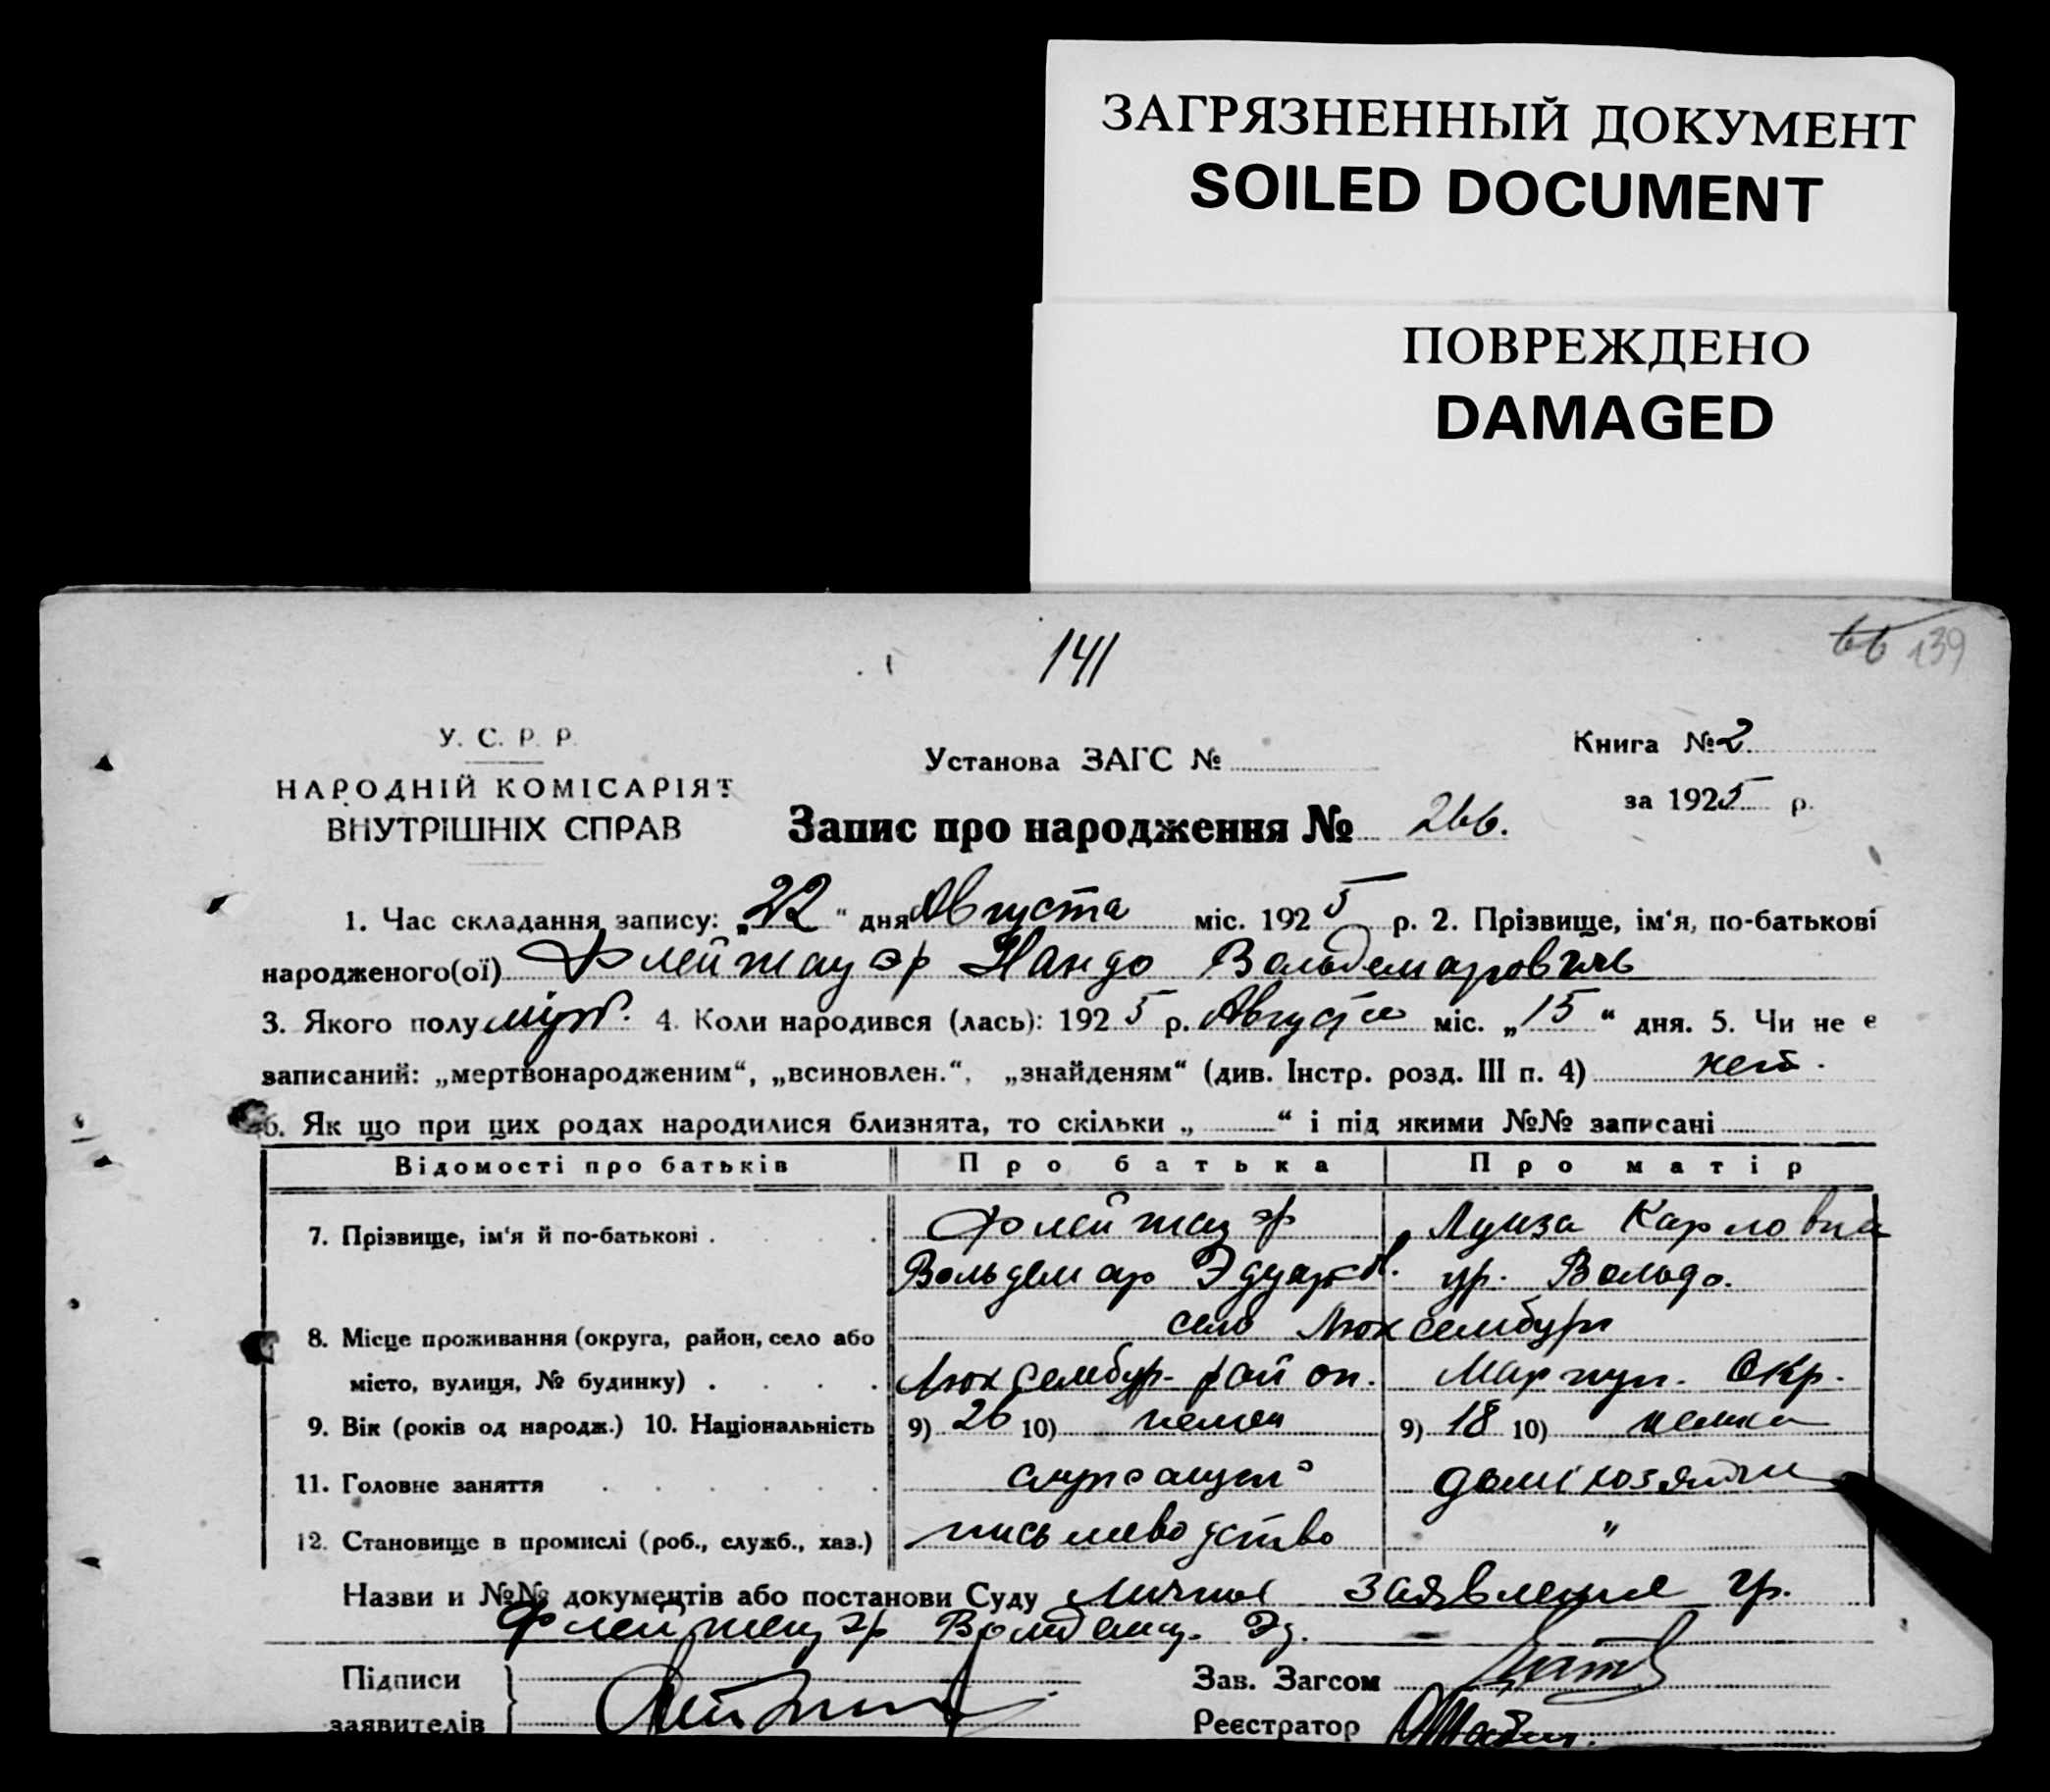 ЗАГРЯЗНЕННЫЙ ДОКУМЕНТ
SOILED DOCUMENT
ПОВРЕЖДЕНО
DAMAGED
141
66 139
У. С. Р. Р.
НАРОДНІЙ КОМІСАРІЯТ
ВНУТРІШНІХ СПРАВ
Установа ЗАГС №
Книга № 2
за 1925 р.
Запис про народження № 266.
1. Час складання запису: „22" дня Августа міс. 1925 р. 2. Прізвище, ім'я, по-батькові
народженого(ої) Флейтауэр Нандо Вольдемарович
3. Якого полу муж. 4. Коли народився (лась): 1925 р. Августа міс. „15" дня. 5. Чи не є
записаний: „мертвонародженим", „всиновлен.", „знайденям" (див. Інстр. розд. III п. 4) нет.
6. Як що при цих родах народилися близнята, то скільки „ " і під якими №№ записані
Відомості про батьків Про батька Про матір
7. Прізвище, ім'я й по-батькові . . . Флейтауэр Луиза Карловна
Вольдемар Эдуардов. ур. Вольдо.
село Люксембург
8. Місце проживання (округа, район, село або
місто, вулиця, № будинку) . . . . Люксембур. район. Мариуп. Окр.
9. Вік (років од народж.) 10. Національність 9) 26 10) немец 9) 18 10) немка
11. Головне заняття . . . . . . служащий домохозяйки
12. Становище в промислі (роб., служб., хаз.) письмоводство "
Назви и №№ документів або постанови Суду Личное заявление гр.
Флейтауэр Вольдемар. Эд.
Підписи
заявителів
Зав. Загсом
Реєстратор